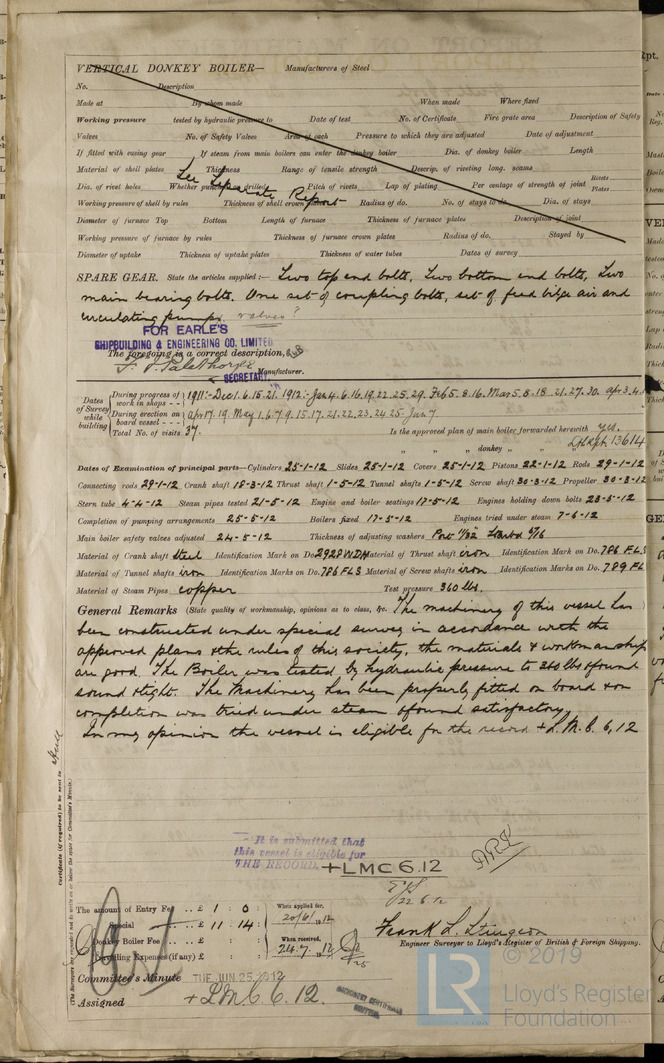 VERTICAL DONKEY BOILER— Manufacturers of Steel
No. Description
Made at By whom made When made Where fixed
Working pressure tested by hydraulic pressure to Date of test No. of Certificate Fire grate area Description of Safety
Valves No. of Safety Valves Area of each Pressure to which they are adjusted Date of adjustment
If fitted with easing gear If steam from main boilers can enter the donkey boiler Dia. of donkey boiler Length
Material of shell plates Thickness Range of tensile strength Descrip. of riveting long. seams
Dia. of rivet holes Whether punched or drilled Pitch of rivets Lap of plating Per centage of strength of joint Rivets Plates
See Separate Report
Working pressure of shell by rules Thickness of shell crown plates Radius of do. No. of stays to do. Dia. of stays
Diameter of furnace Top Bottom Length of furnace Thickness of furnace plates Description of joint
Working pressure of furnace by rules Thickness of furnace crown plates Radius of do. Stayed by
Diameter of uptake Thickness of uptake plates Thickness of water tubes Dates of survey
SPARE GEAR. State the articles supplied:— Two top end bolts, Two bottom end bolts, Two
main bearing bolts. One set of coupling bolts, set of feed bilge air and
circulating pumps valves?
FOR EARLE'S
SHIPBUILDING & ENGINEERING CO. LIMITED
The foregoing is a correct description,
SECRETARY Manufacturer.
Dates of Survey while building
During progress of work in shops - - 1911:- Dec 1. 6. 15. 21. 1912:- Jan 4. 6. 16. 19. 22. 25. 29. Feb 5. 8. 16. Mar 5. 8. 18. 21. 27. 30. Apr 3. 4.
During erection on board vessel - - - Apr 17. 19. May 1. 6. 7. 9. 15. 17. 21. 22. 23. 24. 25. Jun 7.
Total No. of visits 37. Is the approved plan of main boiler forwarded herewith Yes.
" " " donkey " "
13614
Dates of Examination of principal parts—Cylinders 25-1-12 Slides 25-1-12 Covers 25-1-12 Pistons 22-1-12 Rods 29-1-12
Connecting rods 29-1-12 Crank shaft 18-3-12 Thrust shaft 1-5-12 Tunnel shafts 1-5-12 Screw shaft 30-3-12 Propeller 30-3-12
Stern tube 4-4-12 Steam pipes tested 21-5-12 Engine and boiler seatings 17-5-12 Engines holding down bolts 23-5-12
Completion of pumping arrangements 25-5-12 Boilers fixed 17-5-12 Engines tried under steam 7-6-12
Main boiler safety valves adjusted 24-5-12 Thickness of adjusting washers Port 11/32 Starbd 5/16
Material of Crank shaft Steel Identification Mark on Do. 2928WDM Material of Thrust shaft iron Identification Mark on Do. 786 FLS
Material of Tunnel shafts iron Identification Marks on Do. 786 FLS Material of Screw shafts iron Identification Marks on Do. 789 FL
Material of Steam Pipes copper Test pressure 360 lbs.
General Remarks (State quality of workmanship, opinions as to class, &c. The machinery of this vessel has
been constructed under special survey in accordance with the
approved plans & the rules of this society, the materials & workmanship
are good. The Boiler was tested by hydraulic pressure to 360 lbs & found
sound & tight. The Machinery has been properly fitted on board & on
completion was tried under steam & found satisfactory.
In my opinion the vessel is eligible for the record + L.M.C. 6,12
Certificate (if required) to be sent to Hull
(The Surveyors are requested not to write on or below the space for Committee's Minute.)
It is submitted that
this vessel is eligible for
THE RECORD. +LMC 6.12
22.6.12
The amount of Entry Fee .. £ 1 : 0 : When applied for,
Special .. £ 11 : 14 : 20/6/1912
Donkey Boiler Fee .. £ : : When received,
Travelling Expenses (if any) £ : : 24.7.1912
Frank L. Sturgeon
Engineer Surveyor to Lloyd's Register of British & Foreign Shipping.
Committee's Minute TUE. JUN. 25 1912
Assigned + LMC 6. 12.
MACHINERY CERTIFICATE
WRITTEN.
© 2019
LR
Lloyd's Register
Foundation